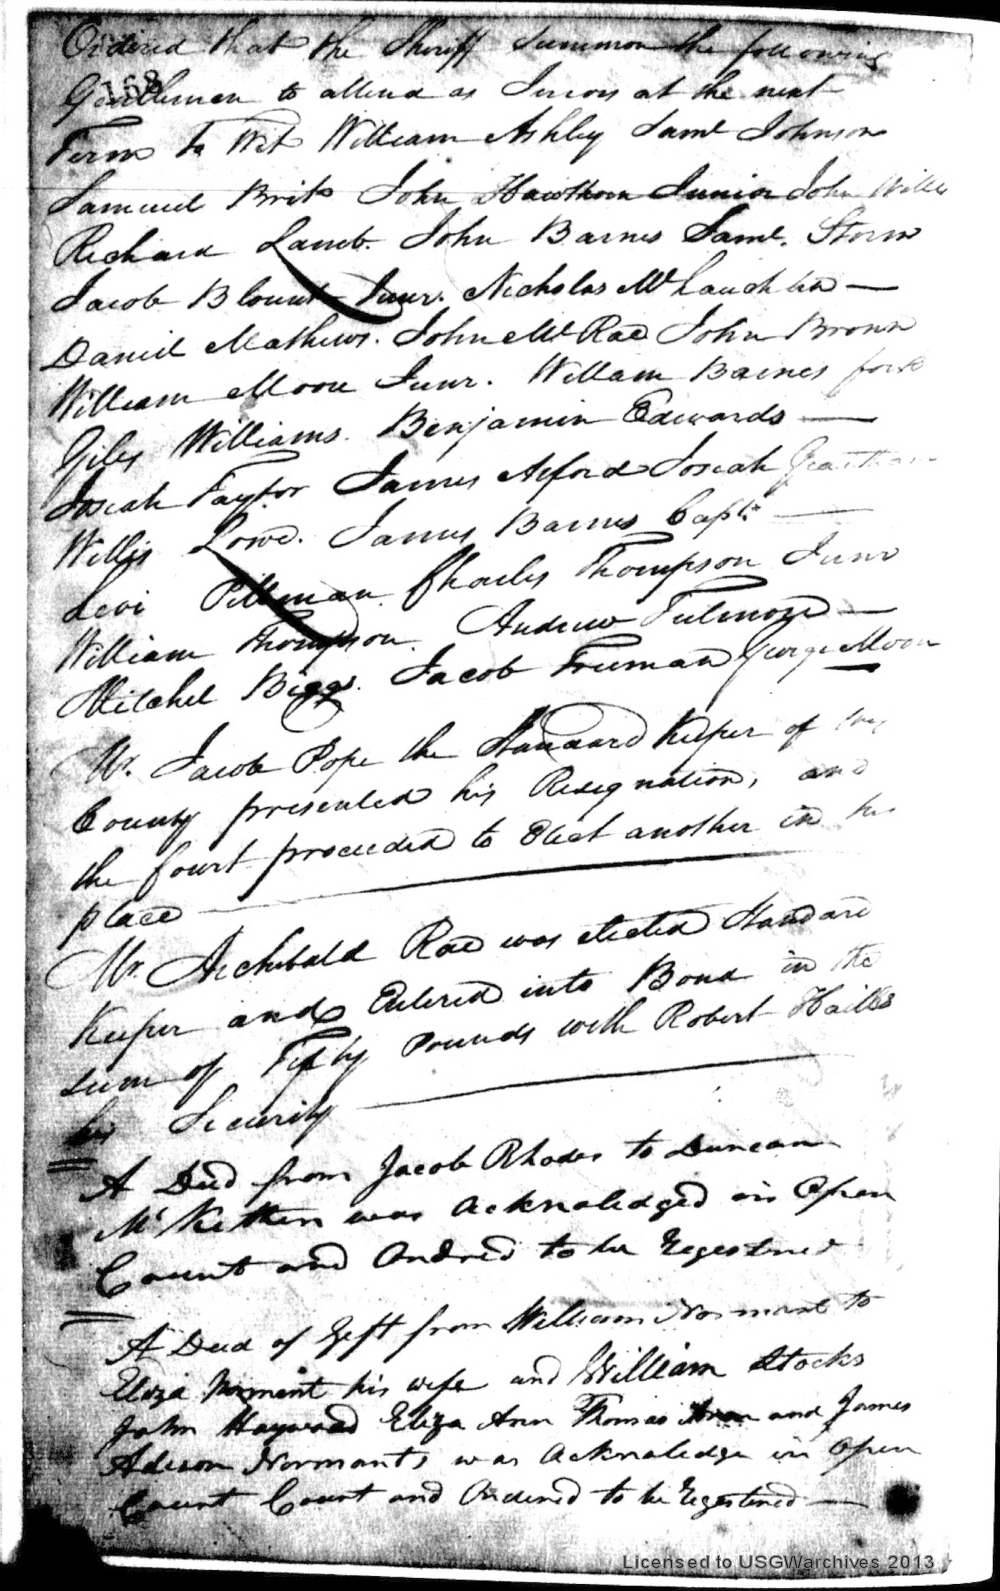 Ordered that the Sheriff Summon the following
158
Gentlemen to attend as Jurors at the next
Term to Wit William Ashley Saml Johnson
Samuel Brit John Hawthorn Junior John Willis
Richard Lamb. John Barnes Saml. Storm
Jacob Blount Junr. Nicholas McLauchlin —
Daniel Mathews. John McRae John Brown
William Moore Junr. William Barnes fork
Giles Williams. Benjamin Edwards —
Josiah Taylor James Alford Josiah
Willis Lowe. James Barnes Capt. —
Levi Pittman Charles Thompson Junr
William Thompson. Andrew Fulmore —
Mitchel Biggs. Jacob Freeman George Moore
Mr. Jacob Pope the Standard Keeper of this
County presented his Resignation, and
the Court proceeded to Elect another in his
place
Mr. Archibald Rae was elected Standard
Keeper and Entered into Bond in the
sum of Fifty Pounds with Robert Hailes
his Security
A Deed from Jacob Rhodes to Duncan
Mc was acknoledged in Open
Count and Ordred to be Regestred
A Deed of Geft from William Norment to
Eliza Norment his wife and William Stocks
John Haywood Eliza Ann Thomas and James
Adison Norments was acknoledge in open
Count Court and Ordered to be Regestered —
Licensed to USGWarchives 2013